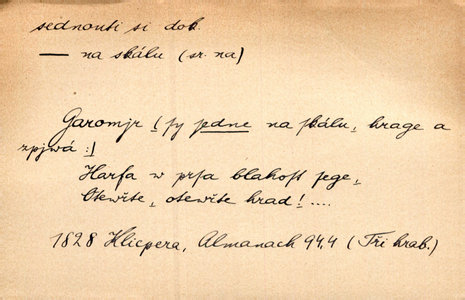 sednouti si dok.
— na skálu (sr. na)
Garomjr (sy sedne na skálu, hrage a
zpjwá:)
Harfa w prsa blahost sege,
Otewřte, otewřte hrad! ....
1828 Klicpera, Almanach 94,4 (Tři hrab.)